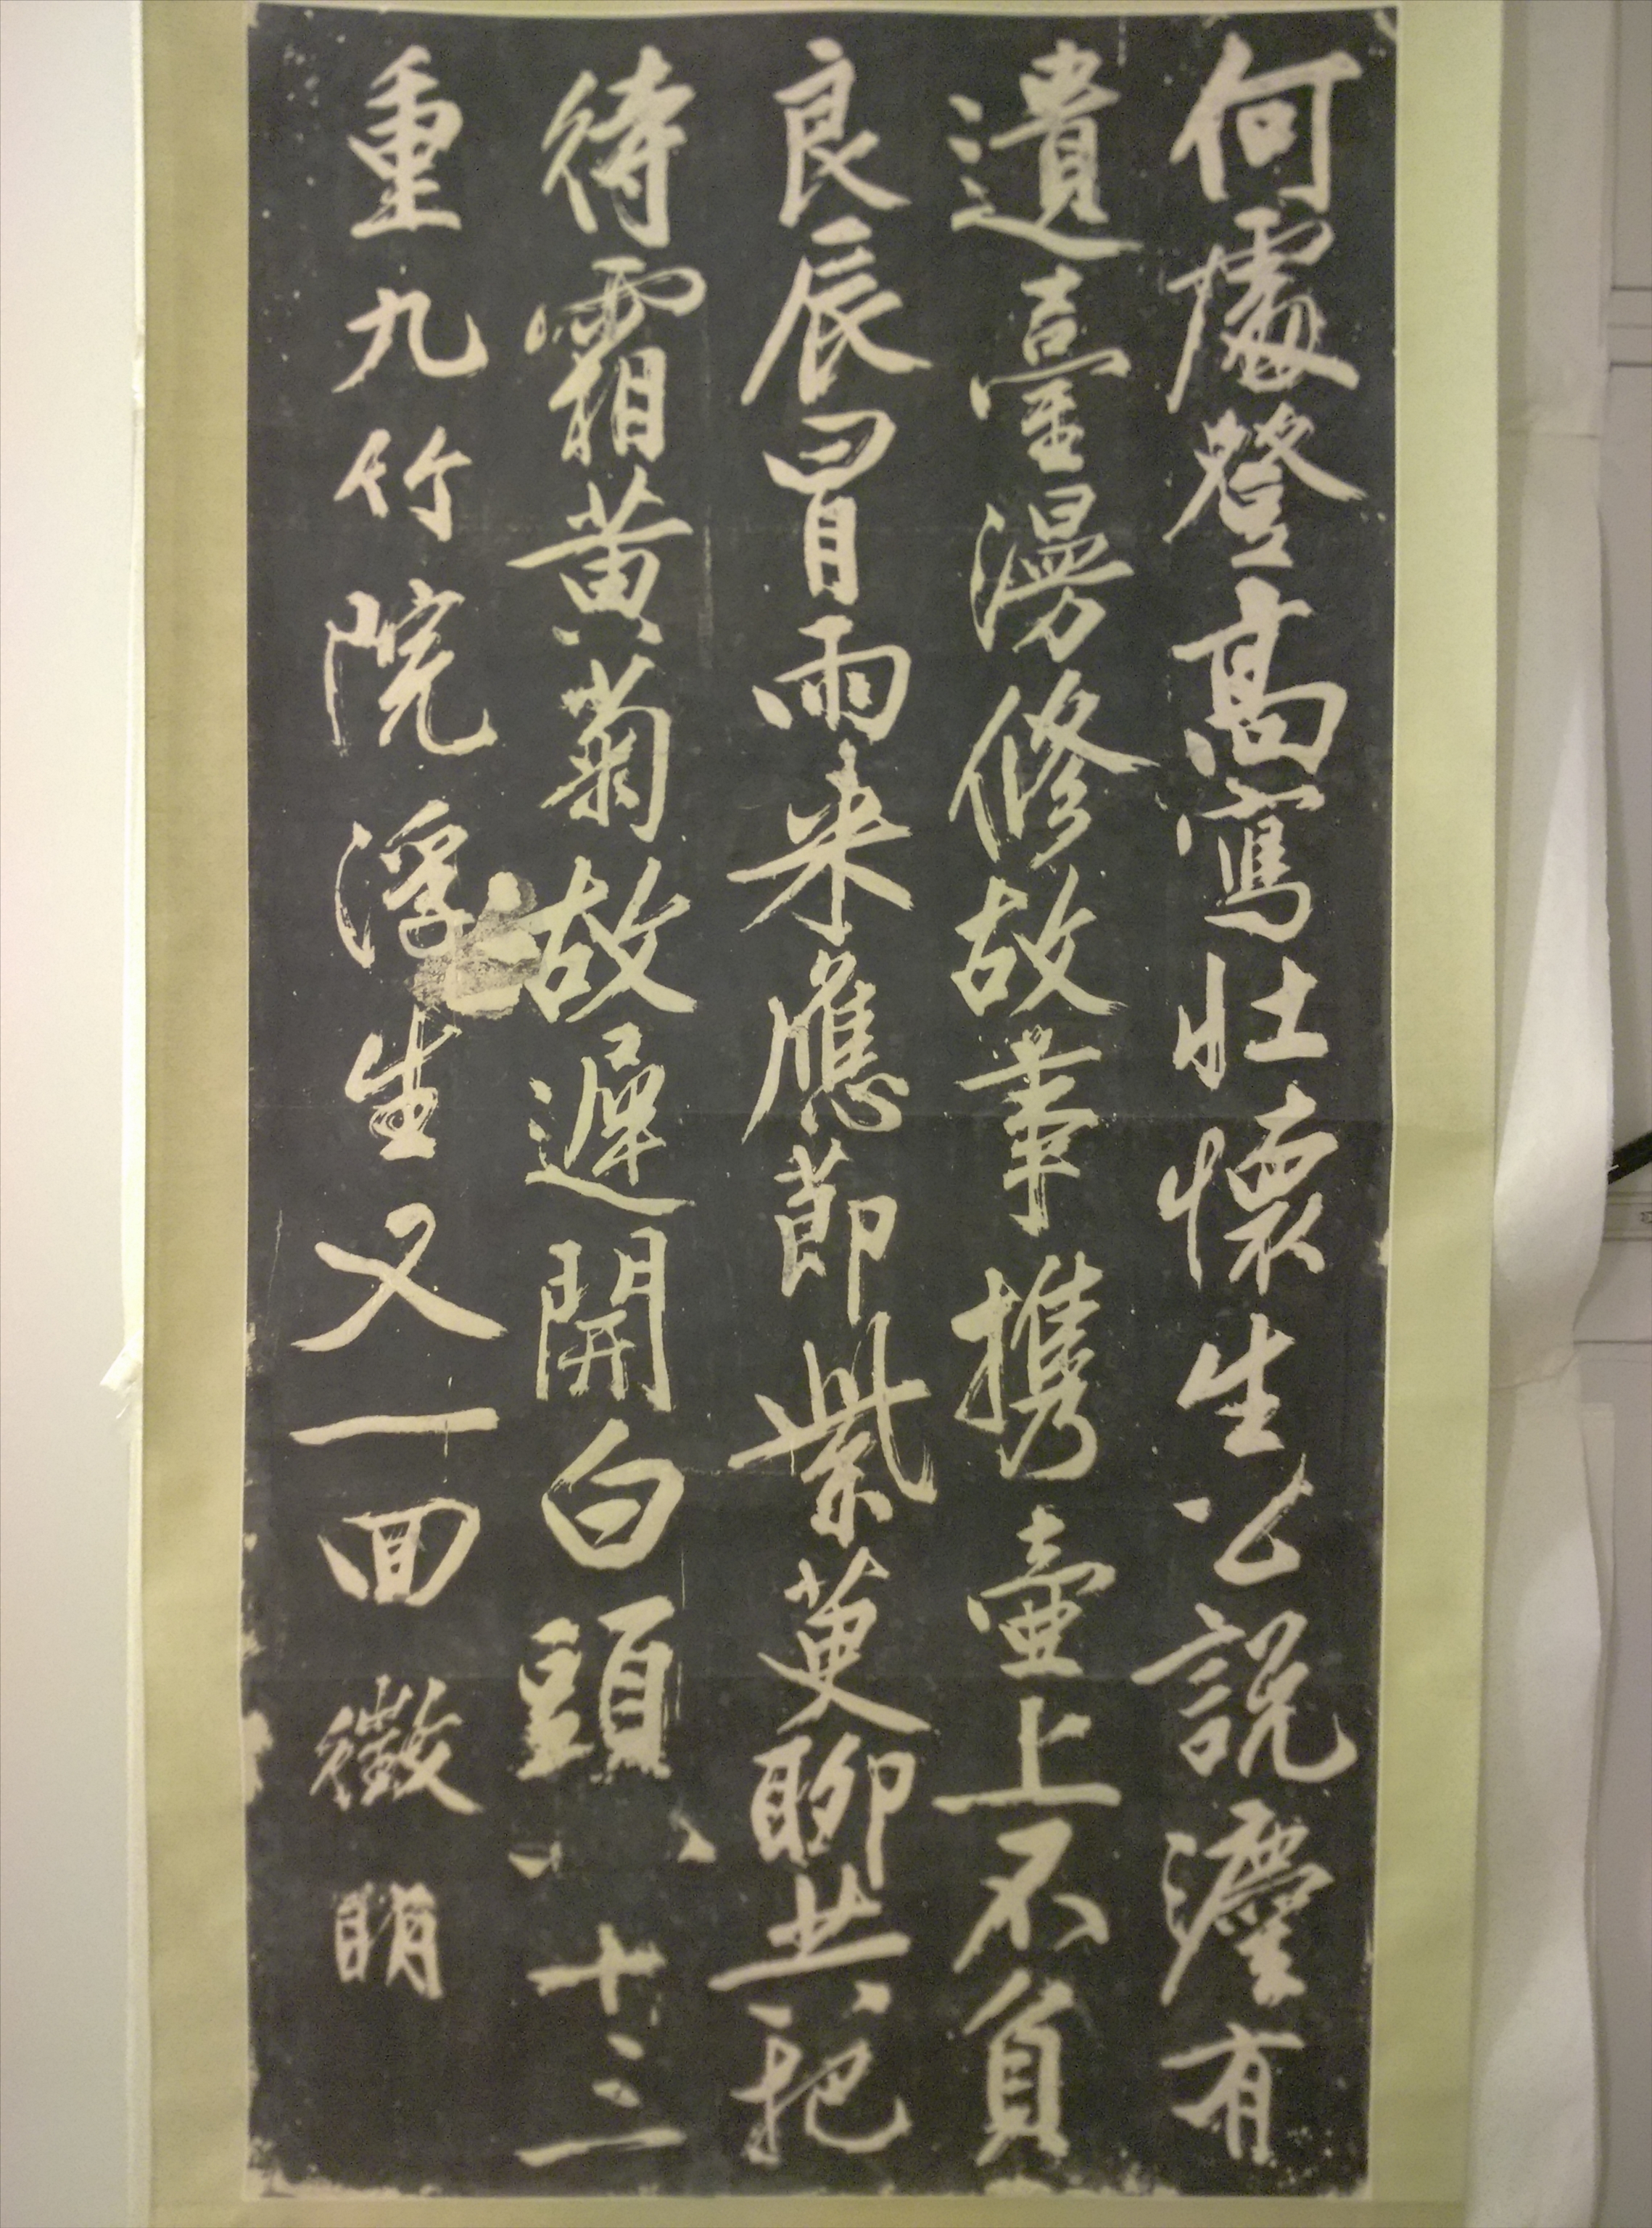 何處登高寫壯懷生公說灋有
遺臺漫修故事携壺上不負
良辰冒雨来應節紫萸聊共把
待霜黄菊故遲開白頭八十三
重九竹院浮生又一回徵明